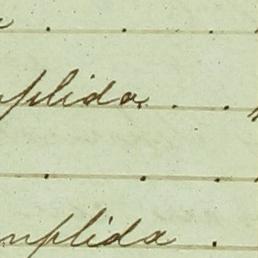 mplida . . .
mplida .